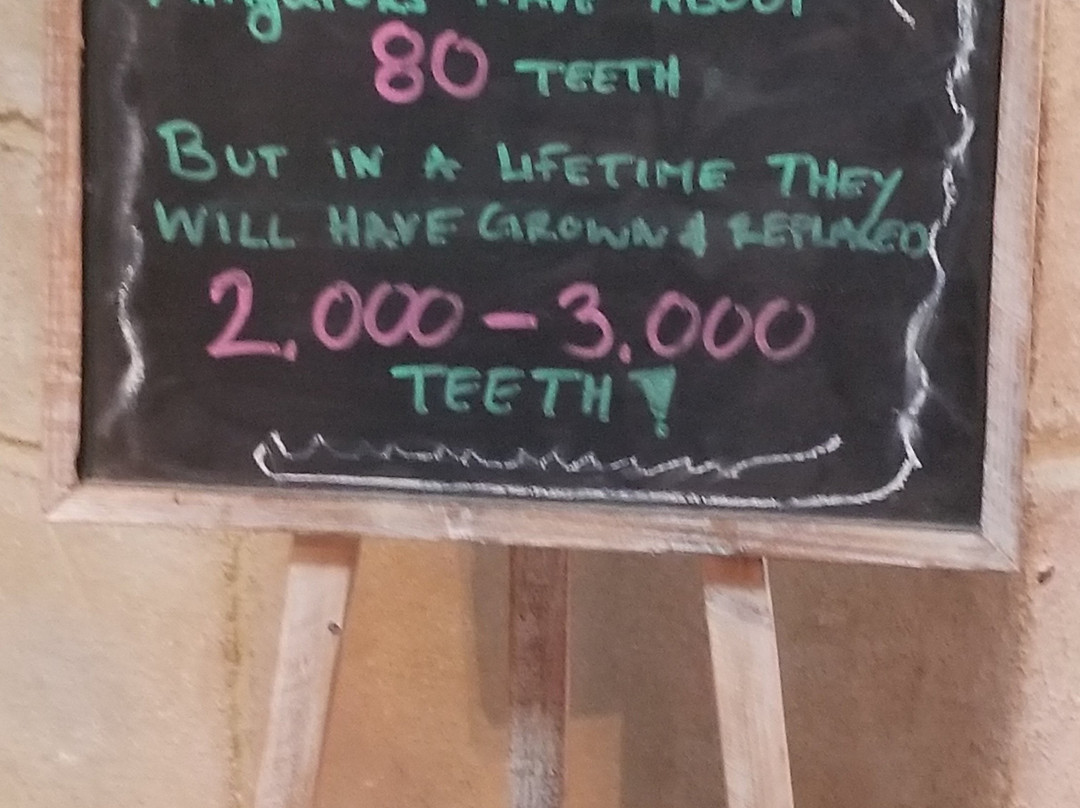 Alligators HAVE ABOUT
80 TEETH
BUT IN A LIFETIME THEY
WILL HAVE GROWN & REPLACED
2,000 - 3,000
TEETH!